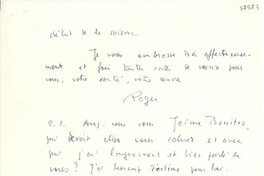 début de la saison.
Je vous embrasse très affectueuse-
ment et fais toutes sortes de vœux pour
vous, votre santé, votre œuvre
Roger
P.S. Avez-vous vu Jaime Benitez,
qui devait aller vous saluer et avec
qui j'ai longuement et bien parlé de
vous ? J'ai beaucoup d'estime pour lui.